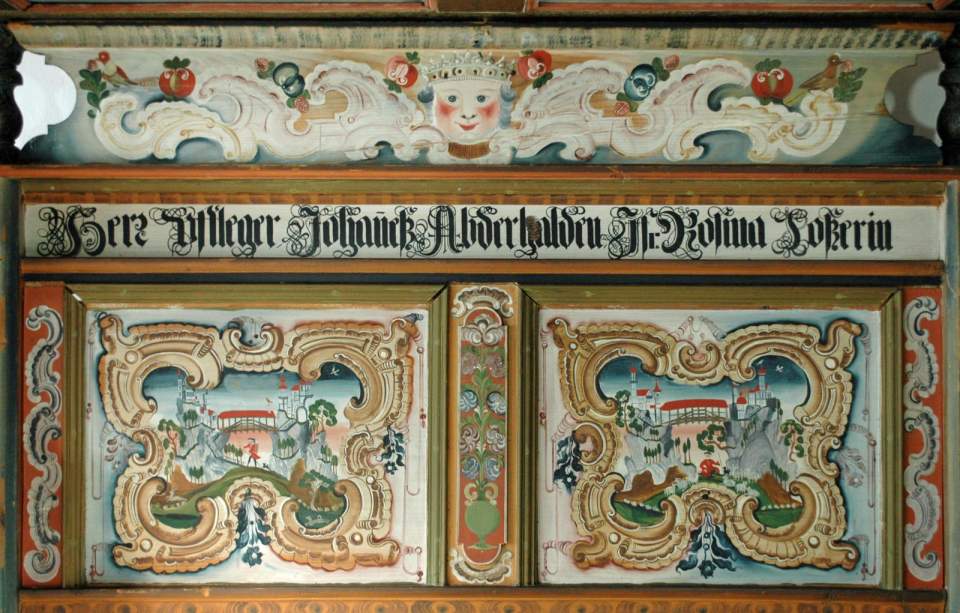 Herr Pfleger Johañeß Abderhalden Fr: Rosina Loßerin